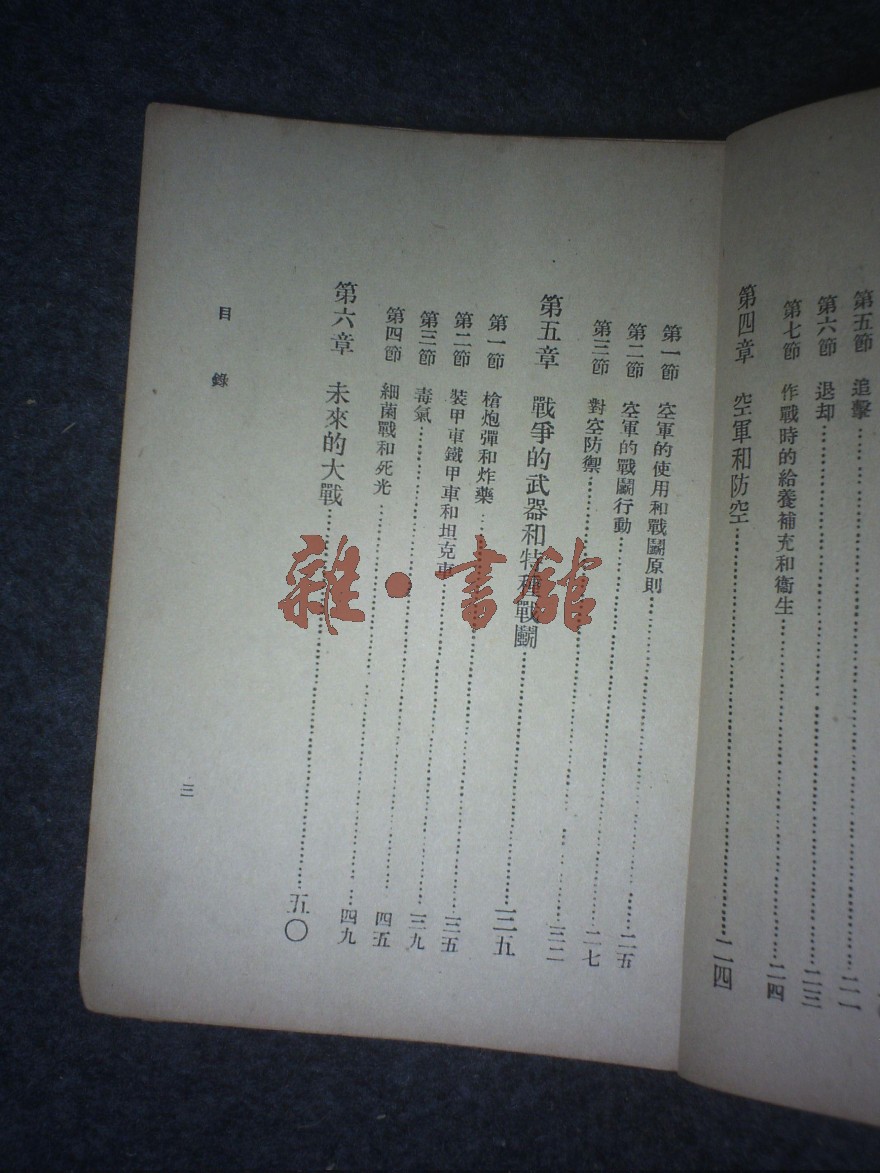 第五節 追擊……二一
第六節 退却……二三
第七節 作戰時的給養補充和衞生……二四
第四章 空軍和防空……二四
第一節 空軍的使用和戰鬭原則……二五
第二節 空軍的戰鬭行動……二七
第三節 對空防禦……三二
第五章 戰爭的武器和特種戰鬭……三五
第一節 槍炮彈和炸藥……三五
第二節 裝甲車鐵甲車和坦克車……三九
第三節 毒氣……四五
第四節 細菌戰和死光……四九
第六章 未來的大戰……五〇
目錄
三
雜·書館